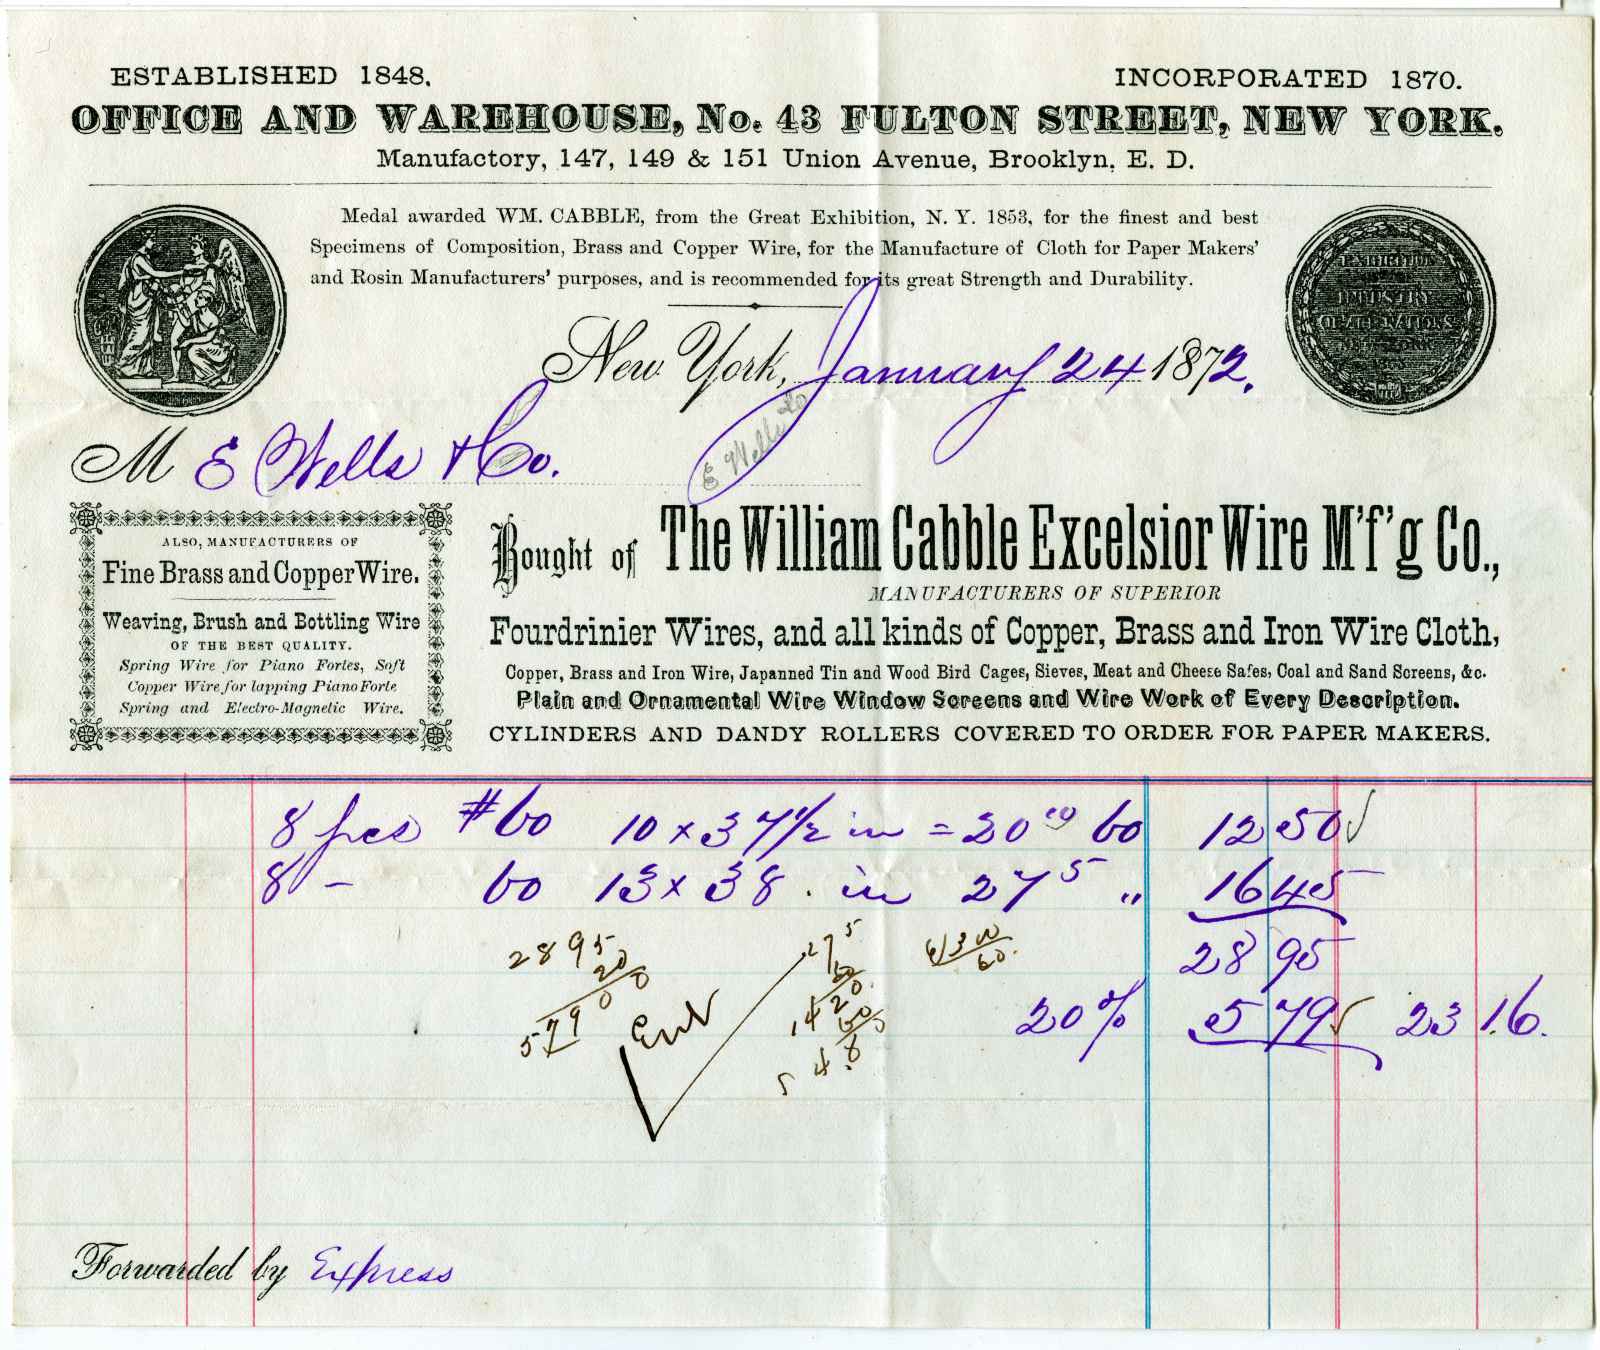 ESTABLISHED 1848.
INCORPORATED 1870.
OFFICE AND WAREHOUSE, No. 43 FULTON STREET, NEW YORK.
Manufactory, 147, 149 & 151 Union Avenue, Brooklyn, E. D.
Medal awarded WM. CABBLE, from the Great Exhibition, N. Y. 1853, for the finest and best
Specimens of Composition, Brass and Copper Wire, for the Manufacture of Cloth for Paper Makers'
and Rosin Manufacturers' purposes, and is recommended for its great Strength and Durability.
EXHIBITION
INDUSTRY
OF ALL NATIONS
NEW YORK
New York, January 24 1872.
M E Wells & Co.
E Wells
ALSO, MANUFACTURERS OF
Fine Brass and Copper Wire.
Weaving, Brush and Bottling Wire
OF THE BEST QUALITY.
Spring Wire for Piano Fortes, Soft
Copper Wire for lapping Piano Forte
Spring and Electro-Magnetic Wire.
Bought of The William Cabble Excelsior Wire M'f'g Co.,
MANUFACTURERS OF SUPERIOR
Fourdrinier Wires, and all kinds of Copper, Brass and Iron Wire Cloth,
Copper, Brass and Iron Wire, Japanned Tin and Wood Bird Cages, Sieves, Meat and Cheese Safes, Coal and Sand Screens, &c.
Plain and Ornamental Wire Window Screens and Wire Work of Every Description.
CYLINDERS AND DANDY ROLLERS COVERED TO ORDER FOR PAPER MAKERS.
8 pcs #60 10 x 37 1/2 in = 20 10 60 12 50
8 - 60 13 x 38 in 27 5 " 16 45
28 95
20% 5 79 23 16.
2895
20
57900
Ent
27 5
60
Forwarded by Express